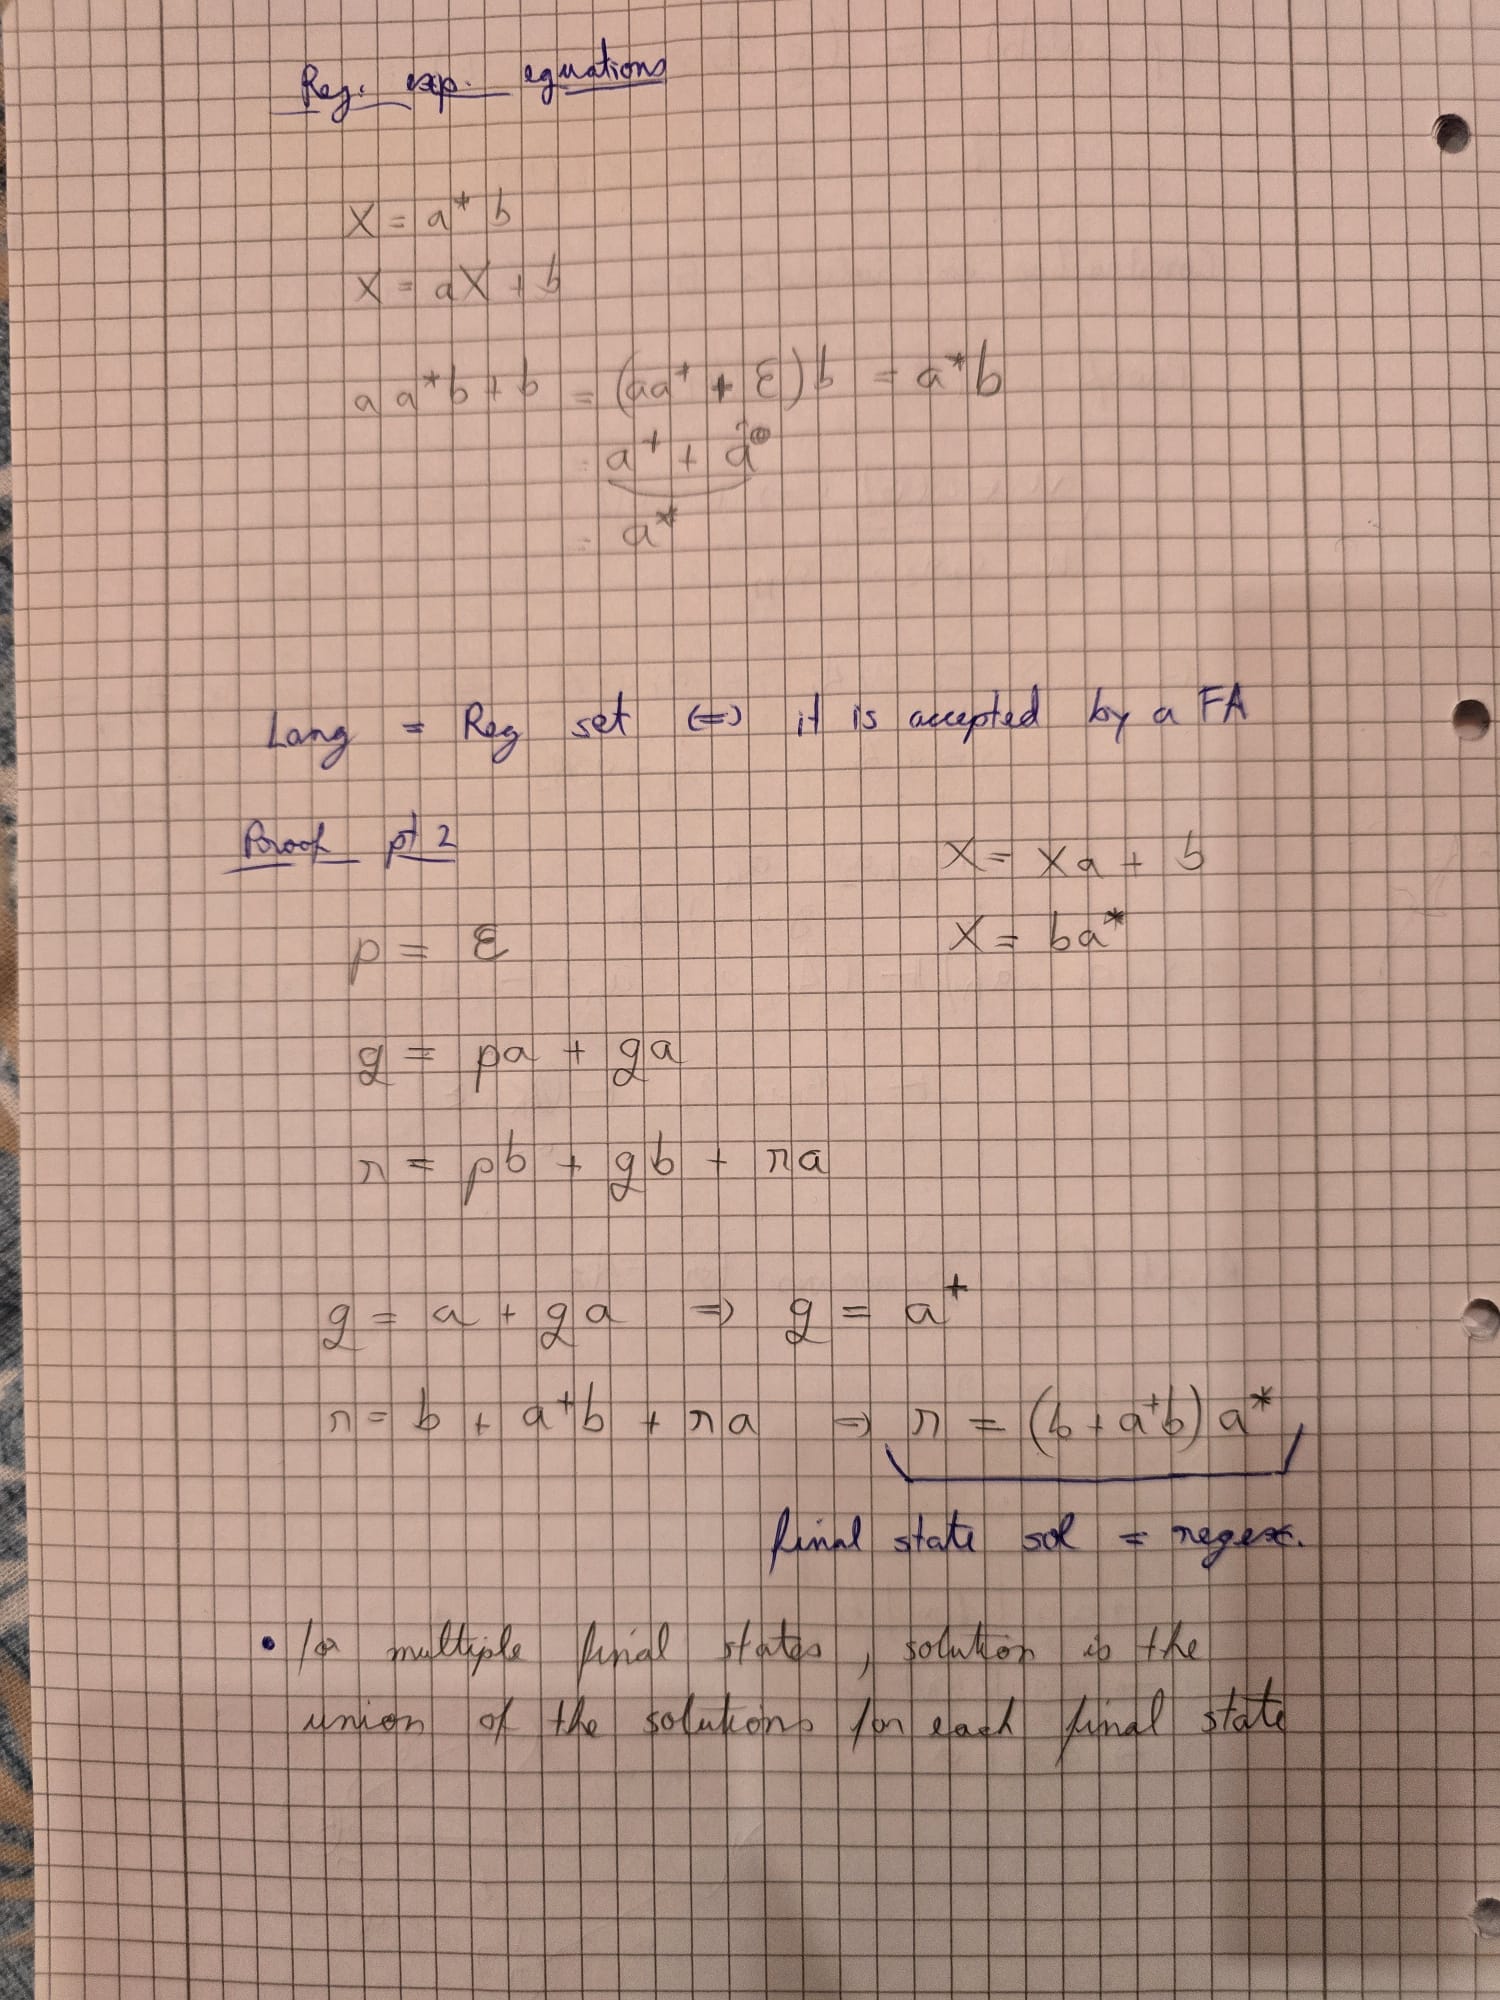 Reg. exp. equations
X = a* b
X = aX + b
a a* b + b = (aa⁺ + ε) b = a* b
= a⁺ + a⁰
= a*
Lang = Reg set (=) it is accepted by a FA
Proof pt 2
X = Xa + b
p = ε
X = ba*
q = pa + qa
r = pb + qb + ra
q = a + qa => q = a⁺
r = b + a⁺b + ra => r = (b + a⁺b) a*
final state sol = regex.
• for multiple final states, solution is the
union of the solutions for each final state